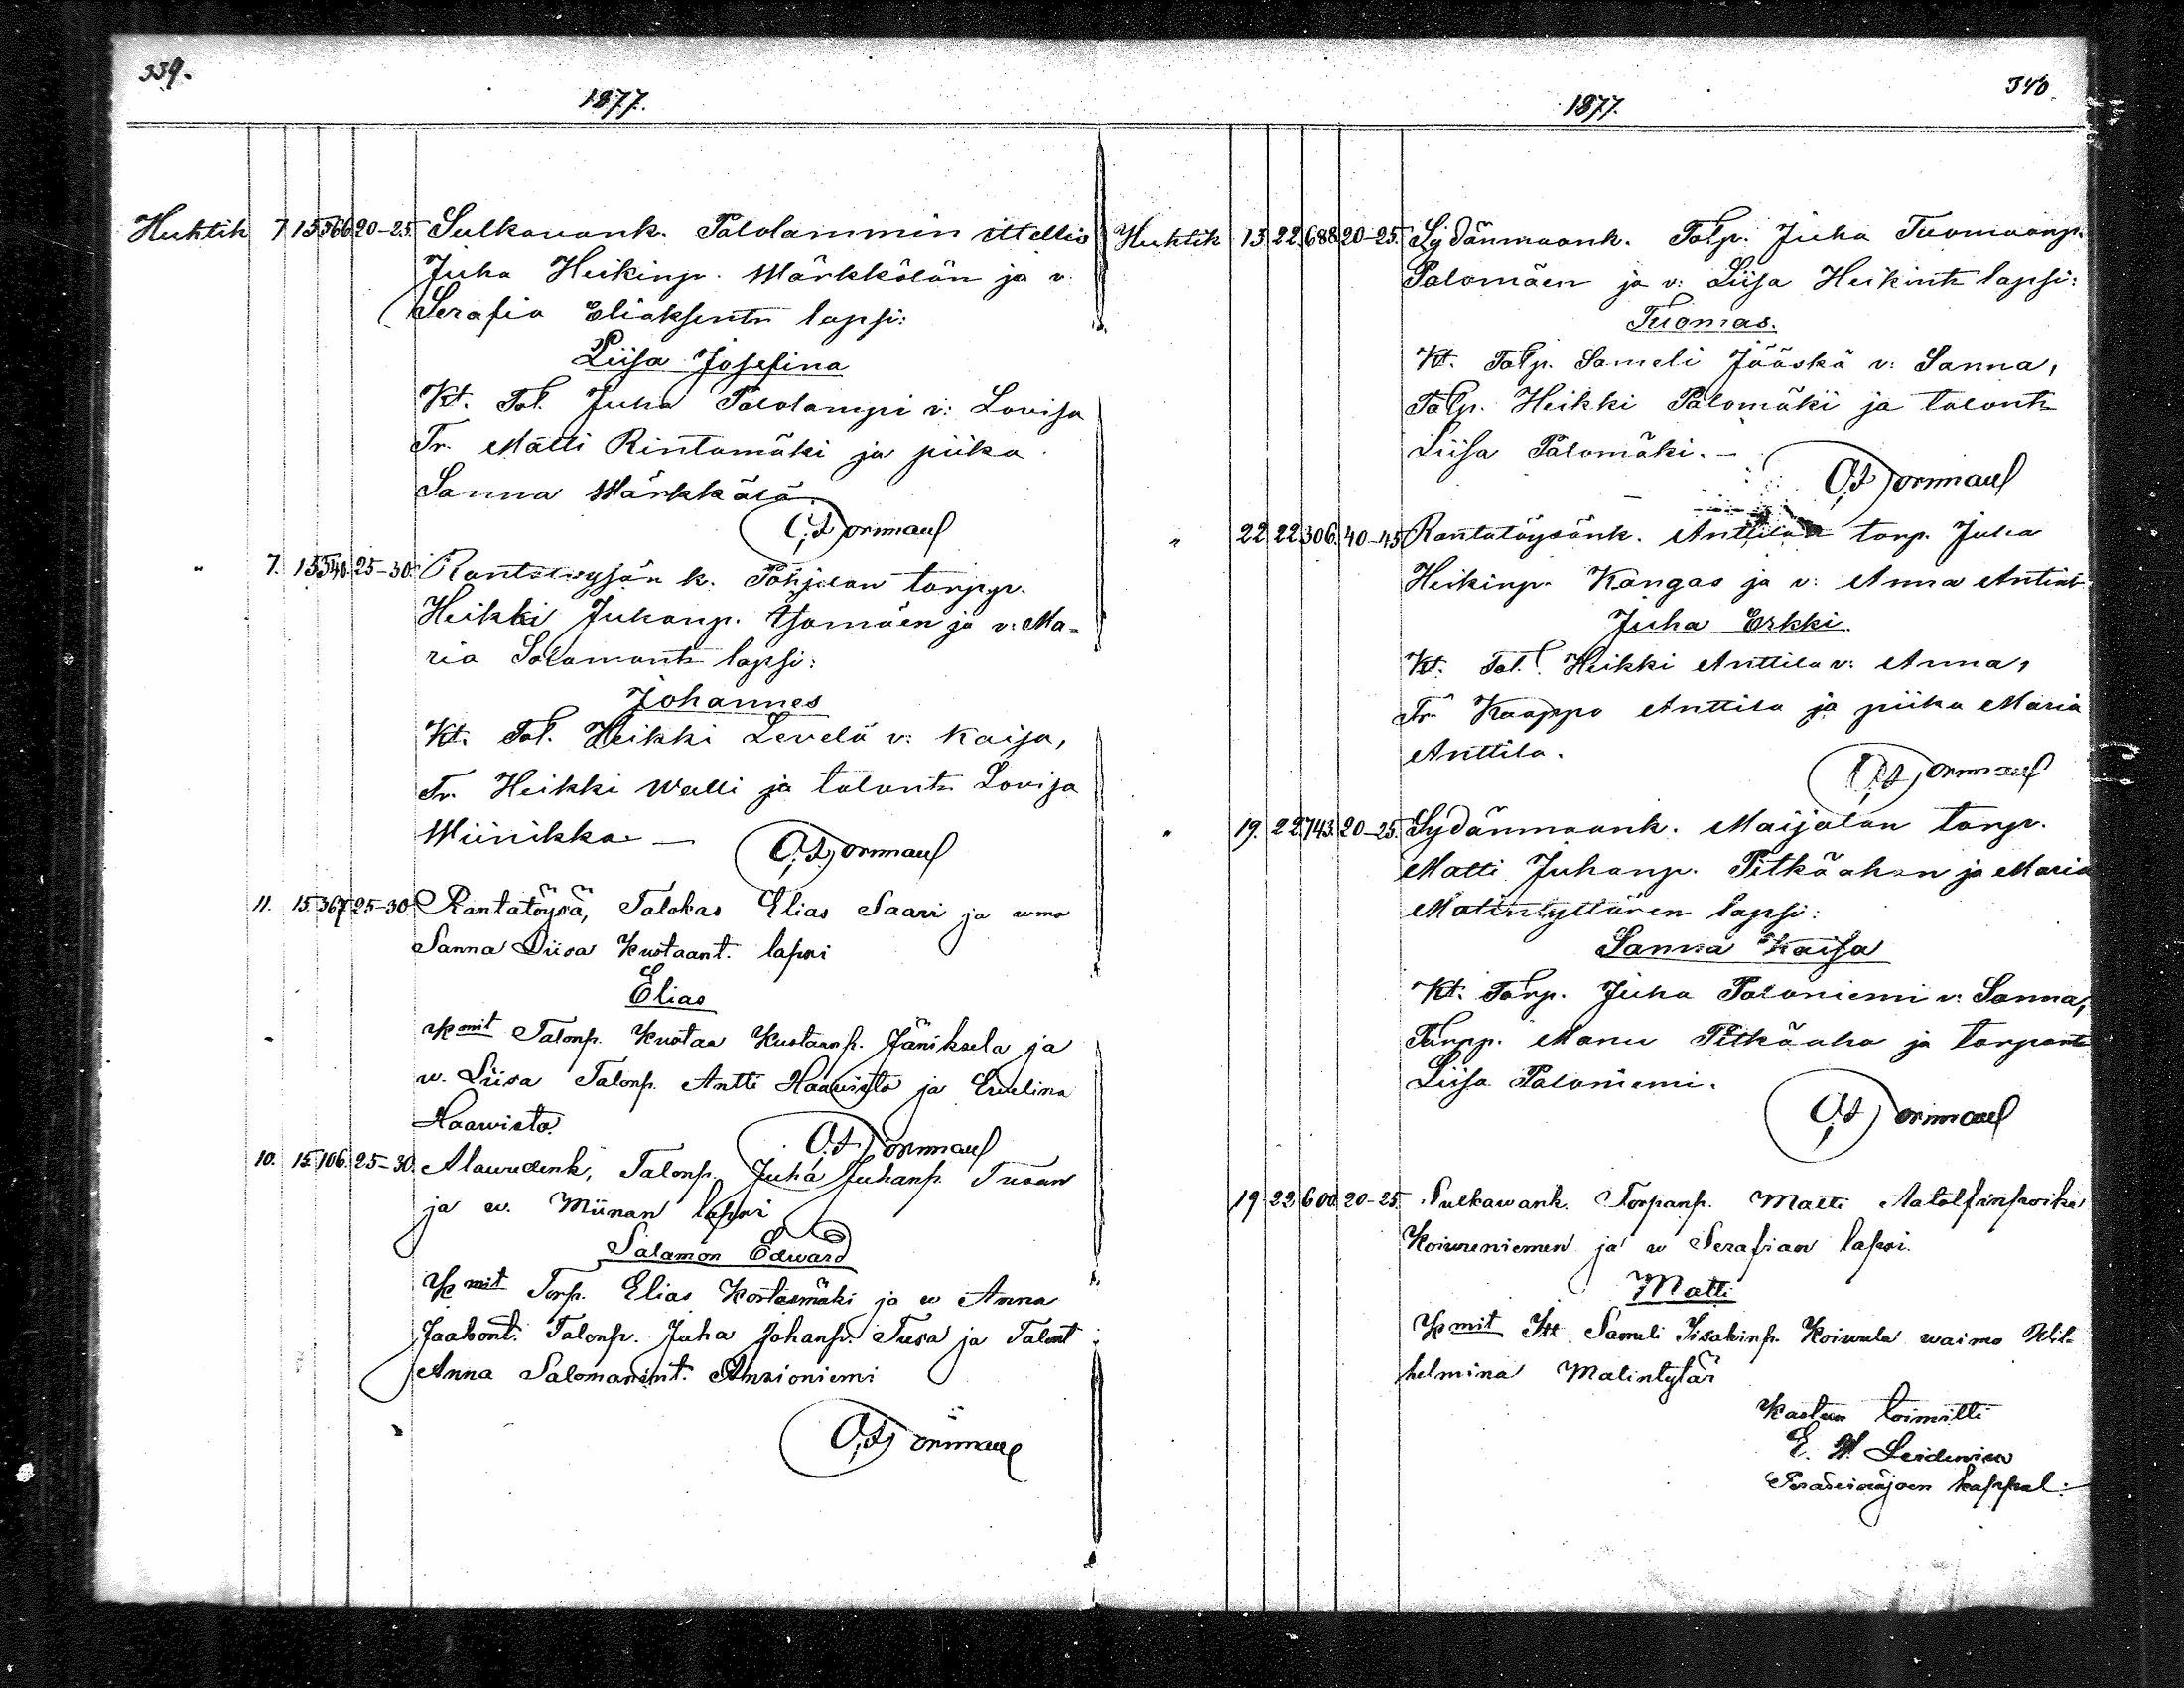 339.
1877.
Huhtik 7. 15. 566. 20-25. Sulkavank. Palolammin ittellis
Juha Heikinp. Märkkälän ja v.
Serafia Eliaksentr. lapsi:
Liisa Josefina
Kt. Tal. Juha Palolampi v: Lovisa
Tr. Matti Rintamäki ja piika
Sanna Märkkälä.
" 7. 15. 340. 25-30. Rantatöysän k. Pohjolan torpp.
Heikki Juhanp. ja v: Ma-
ria Salamontr lapsi:
Johannes
Kt. Tal. Heikki Levelä v: Kaisa,
Tr. Heikki Walli ja talontr Lovisa
Wiinikka —
11. 15. 367. 25-30. Rantatöysä, Talokas Elias Saari ja wmo
Sanna Liisa Kustaant. lapsi
Elias
Kmit Talonp. Kustaa Kustaanp. Jäniksela ja
w. Liisa Talonp. Antti Haawisto ja Ewelina
Haawisto.
10. 15. 106. 25-30. Alawudenk, Talonp. Juha Juhanp. Tusan
ja w. Miinan lapsi
Salamon Edward
Kmit Torp. Elias Kortesmäki ja w Anna
Jaakont. Talonp. Juha Johanp. Tusa ja Talont
Anna Salomanint. Ansioniemi
340
1877.
Huhtik 13. 22. 688. 20-25. Sydänmaank. Talp. Juha Tuomaanp.
Palomäen ja v: Liisa Heikintr lapsi:
Tuomas.
Kt. Talp. Sameli Jääskä v: Sanna,
Talp. Heikki Palomäki ja talontr
Liisa Palomäki. —
" 22. 22. 306. 40-45 Rantatöysänk. Anttilan torp. Juha
Heikinp. Kangas ja v: Anna Antint
Juha Erkki.
Kt. Tal. Heikki Anttila v: Anna,
Tr. Kaappo Anttila ja piika Maria
Anttila.
" 19. 22. 743. 20-25. Sydänmaank. Maijalan torp.
Matti Juhanp. Pitkäahon ja Maria
Matintyttären lapsi:
Sanna Kaisa
Kt. Torp. Juha Paloniemi v: Sanna,
Torpp. Manu Pitkäaho ja torpantr
Liisa Paloniemi.
19. 22. 600. 20-25. Sulkawank. Torpanp. Matti Aatolfinpoika
Koiwuniemen ja w Serafian lapsi.
Matti
Kmit Itt. Sameli Iisakinp. Koiwula waimo Wil-
helmina Matintytär
Kasteen toimitti
E. W.
Peräseinäjoen kappal.